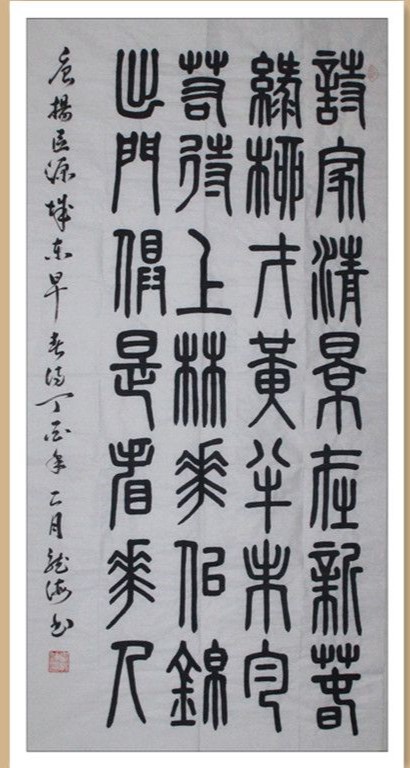 詩家清景在新春
綠柳才黃半未勻
若待上林花似錦
出門俱是看花人
唐楊巨源城东早春詩丁酉年二月龍海书